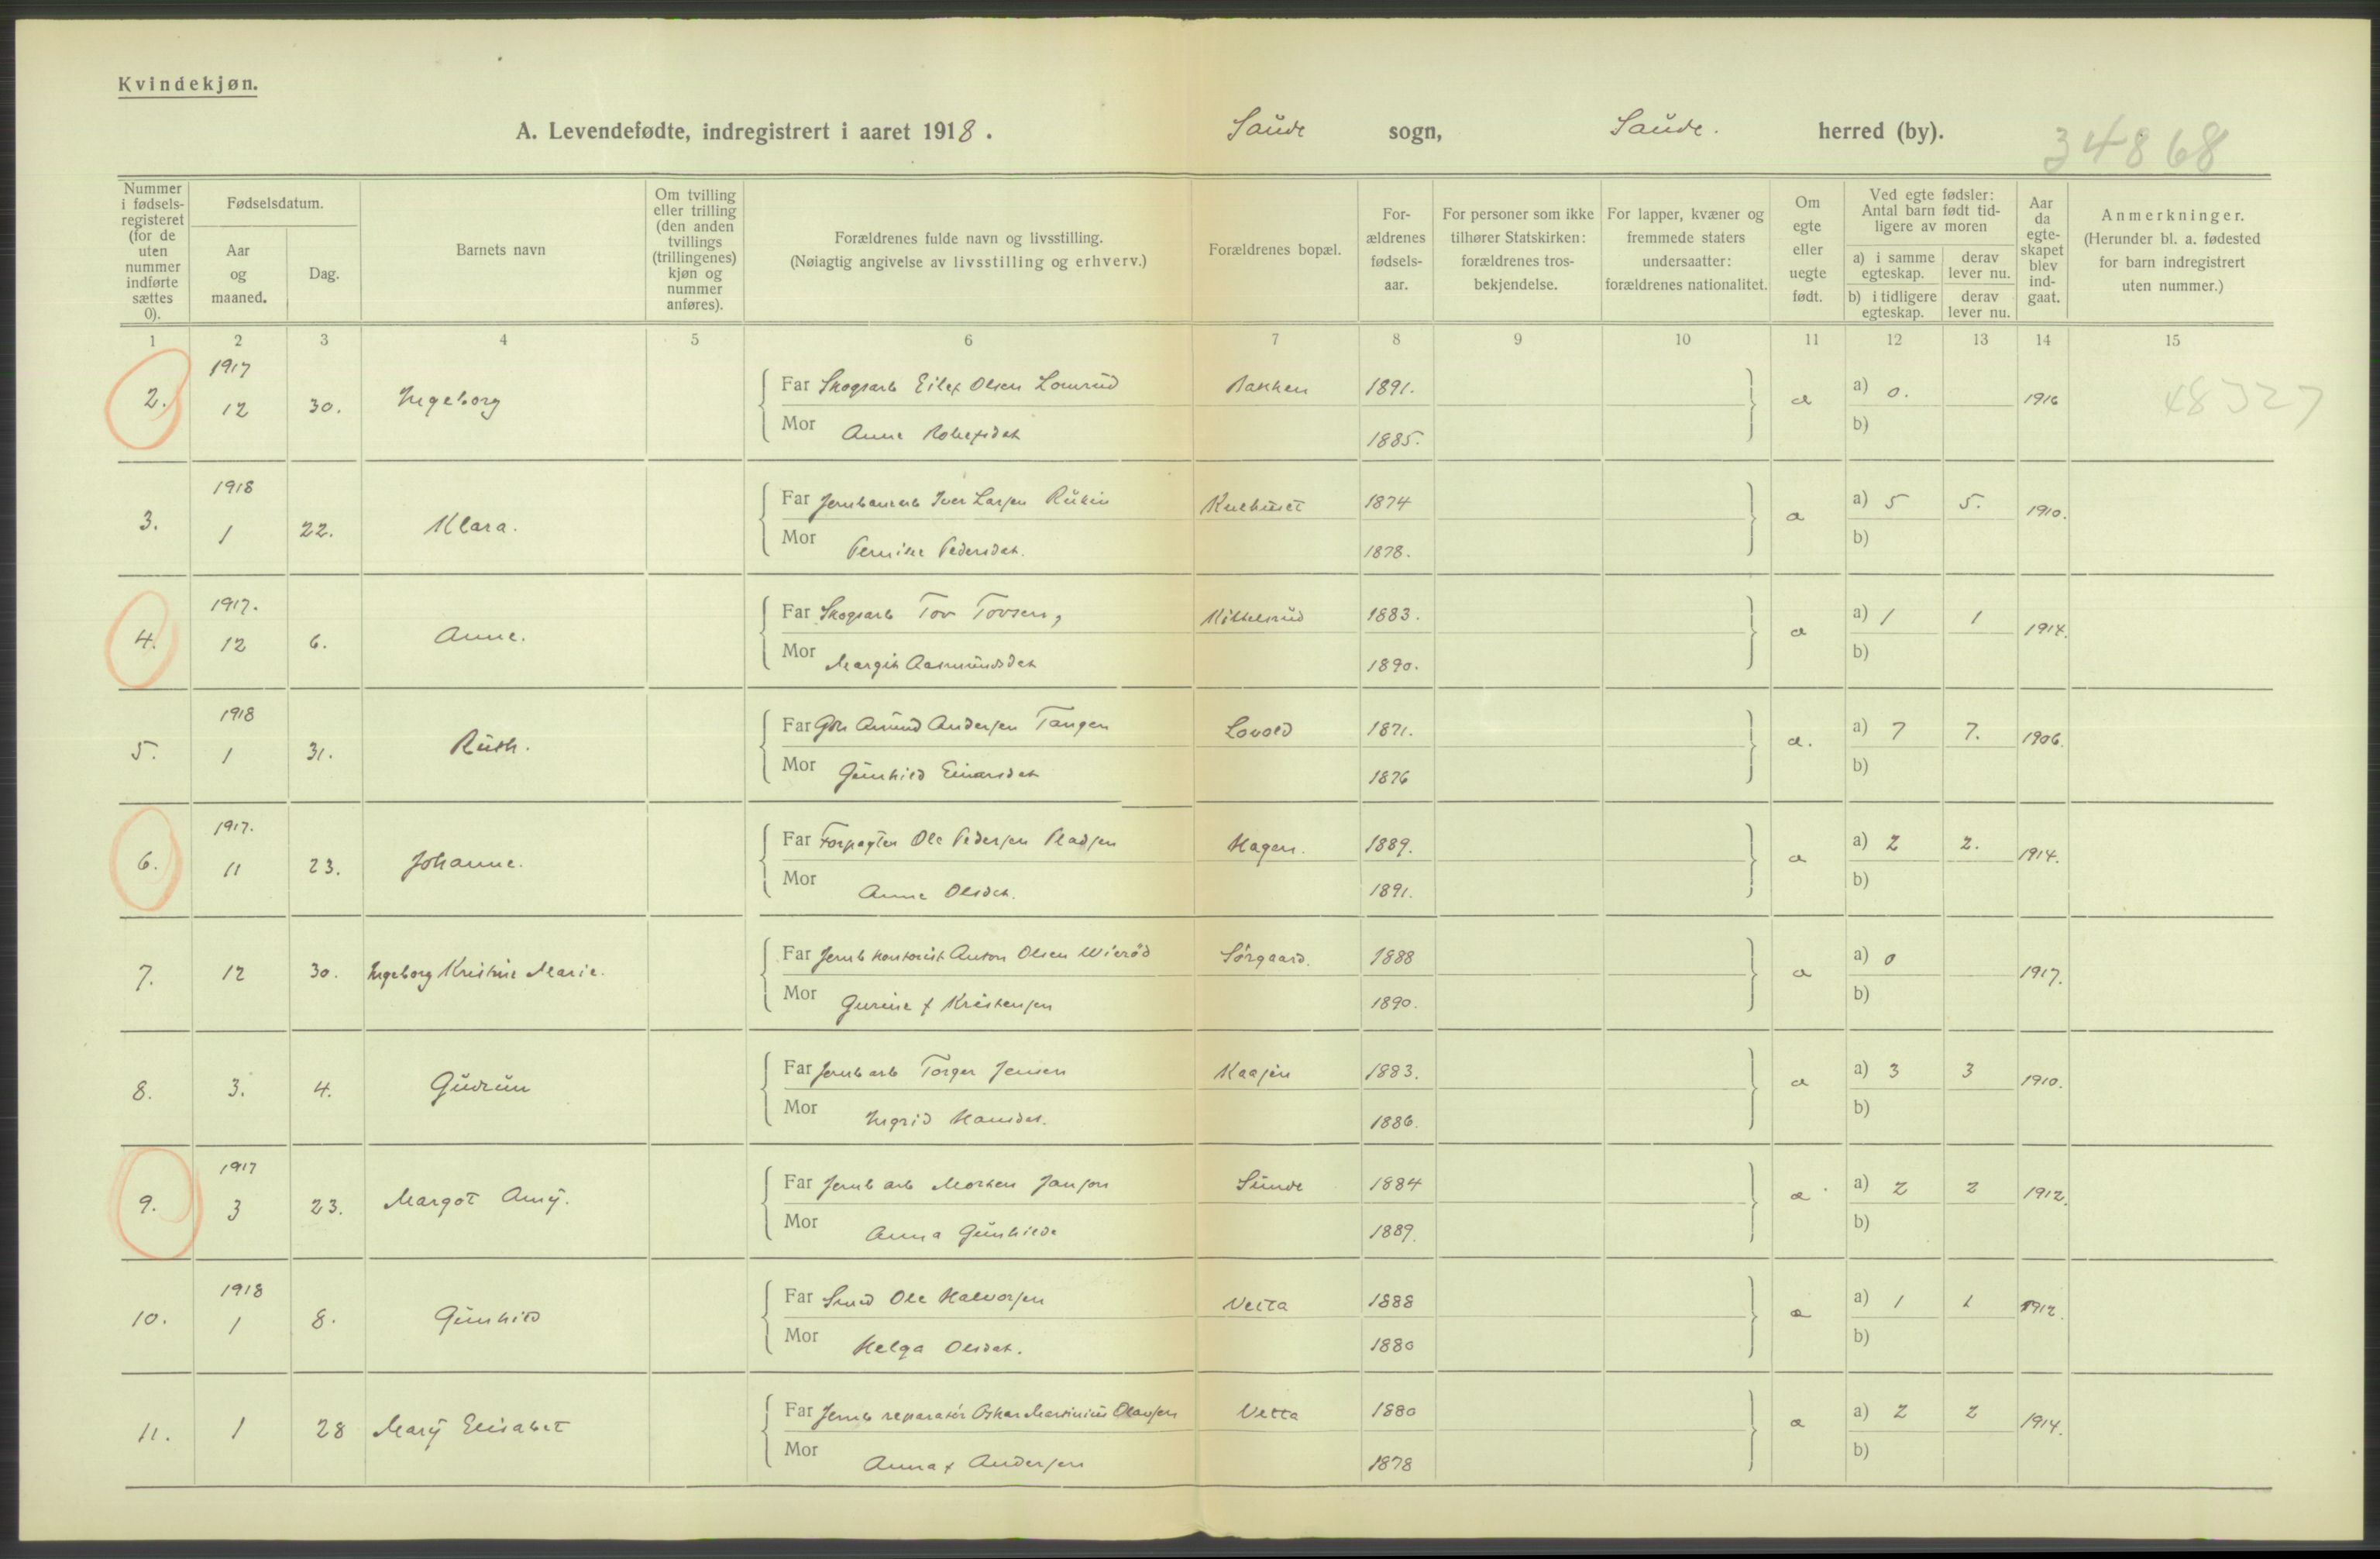 Kvindekjøn.
A. Levendefødte, indregistrert i aaret 1918. Saude sogn, Saude. herred (by).
34868
Nummer i fødsels-registeret (for de uten nummer indførte sættes 0).
Fødselsdatum.
Aar og maaned.
Dag.
Barnets navn
Om tvilling eller trilling (den anden tvillings (trillingenes) kjøn og nummer anføres).
Forældrenes fulde navn og livsstilling. (Nøiagtig angivelse av livsstilling og erhverv.)
Forældrenes bopæl.
For-ældrenes fødsels-aar.
For personer som ikke tilhører Statskirken: forældrenes tros-bekjendelse.
For lapper, kvæner og fremmede staters undersaatter: forældrenes nationalitet.
Om egte eller uegte født.
Ved egte fødsler: Antal barn født tid-ligere av moren
a) i samme egteskap. derav lever nu.
b) i tidligere egteskap. derav lever nu.
Aar da egte-skapet blev ind-gaat.
Anmerkninger. (Herunder bl. a. fødested for barn indregistrert uten nummer.)
1 2 3 4 5 6 7 8 9 10 11 12 13 14 15
1917
2. 12 30. Ingeborg Far Skogsarb Eilef Olsen Lomrud Bakken 1891. a a) 0. 1916 48327
Mor Anne 1885. b)
1918
3. 1 22. Klara. Far Iver Larsen Kulhuset 1874 a a) 5 5. 1910.
Mor Pernille Pedersdat. 1878. b)
1917.
4. 12 6. Anne. Far Skogsarb Tov Tovsen, Kittelsrud 1883. a a) 1 1 1914.
Mor Margit Aasmundsdat 1890. b)
1918
5. 1 31. Ruth. Far Amund Andersen Tangen Lovold 1871. a. a) 7 7. 1906.
Mor Gunhild Einarsdat 1876 b)
1917.
6. 11 23. Johanne. Far Forpagter Ole Pedersen Pladsen Hagen. 1889. a a) 2 2. 1914.
Mor Anne Olsdat. 1891. b)
7. 12 30. Ingeborg Kristine Marie. Far Jernb kontorist Anton Olsen Wierød Sørgaard. 1888 a a) 0 1917.
Mor Gurine f Kristensen 1890. b)
8. 3. 4. Gudrun Far Jernb arb Torger Jensen Kaasin 1883. a a) 3 3 1910.
Mor Ingrid Hansdat. 1886. b)
1917
9. 3 23. Margot Amy. Far Jernb arb Morten Jansen Sunde 1884 a a) 2 2 1912.
Mor Anna Gunhilde 1889. b)
1918
10. 1 8. Gunhild Far Smed Ole Halvorsen Vetta 1888 a a) 1 1 1912.
Mor Helga Olsdat. 1880 b)
11. 1 28 Mary Elisabet Far Jernb reparatør Oskar Martinius Olavsen Vetta 1880 a a) 2 2 1914.
Mor Anna f Andersen 1878 b)